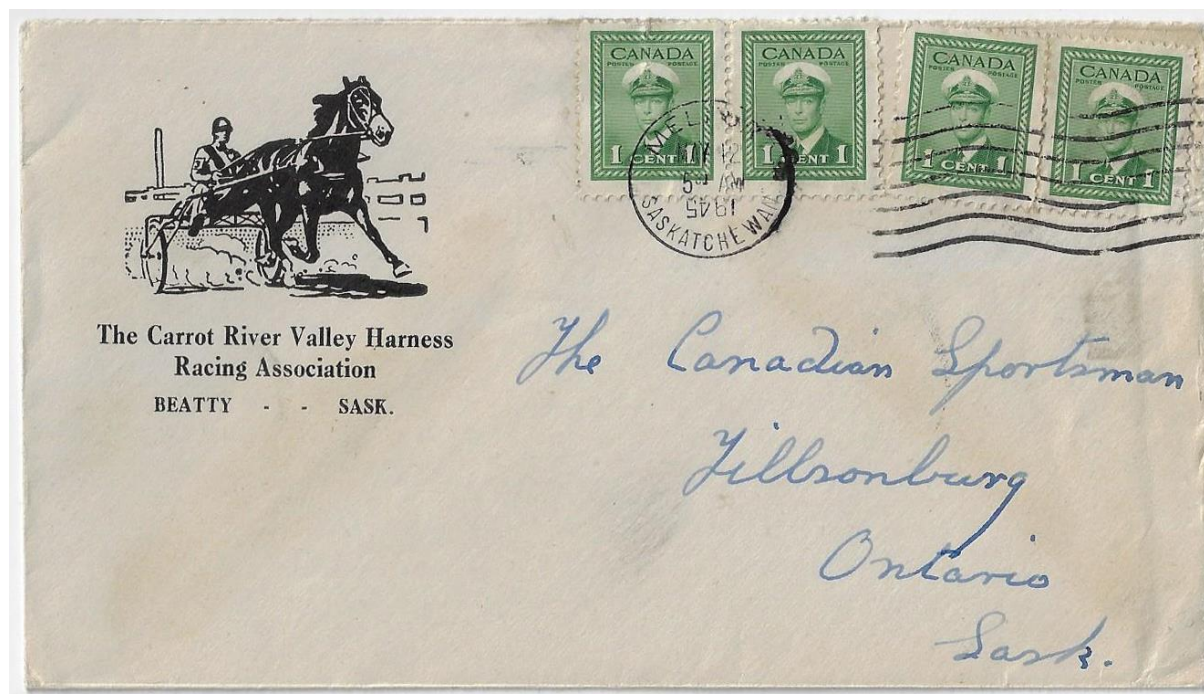 CANADA
POSTES POSTAGE
1 CENT 1
CANADA
POSTES POSTAGE
1 CENT 1
CANADA
POSTES POSTAGE
1 CENT 1
CANADA
POSTES POSTAGE
1 CENT 1
AM
1945
SASKATCHEWAN
The Carrot River Valley Harness
Racing Association
BEATTY - - SASK.
The Canadian Sportsman
Tillsonburg
Ontario
Sask.